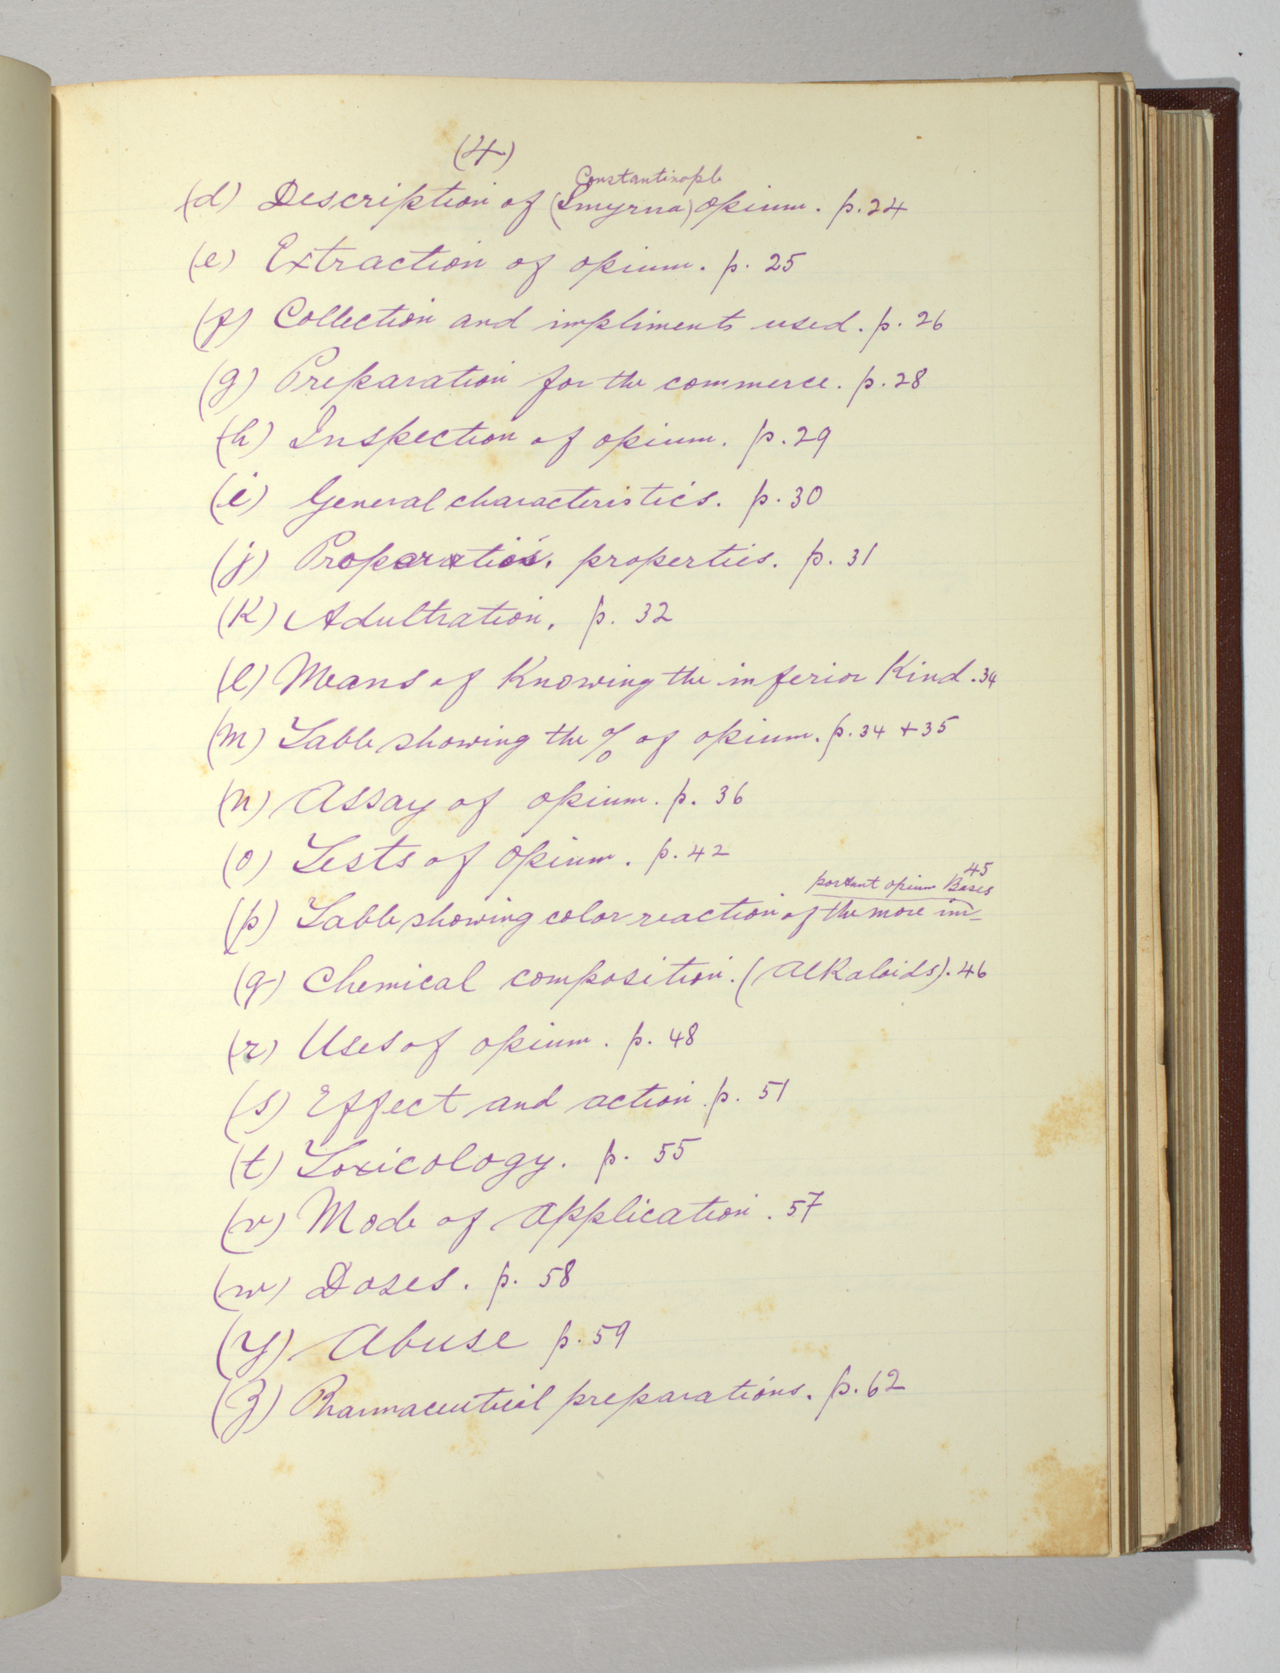 (4)
Constantinople
(d) Description of (Smyrna) opium. p. 24
(e) Extraction of opium. p. 25
(f) Collection and impliments used. p. 26
(g) Preparation for the commerce. p. 28
(h) Inspection of opium. p. 29
(i) General characteristics. p. 30
(j) properties. p. 31
(K) Adultration. p. 32
(l) Means of Knowing the inferior Kind. 34
(m) Table showing the % of opium. p. 34 + 35
(n) Assay of opium. p. 36
(o) Tests of opium. p. 42
45
portant opium Bases
(p) Table showing color reaction of the more im-
(q) Chemical composition. (Alkaloids). 46
(r) Uses of opium. p. 48
(s) Effect and action. p. 51
(t) Toxicology. p. 55
(v) Mode of Application. 57
(w) Doses. p. 58
(y) Abuse p. 59
(z) Pharmaceutical preparations. p. 62